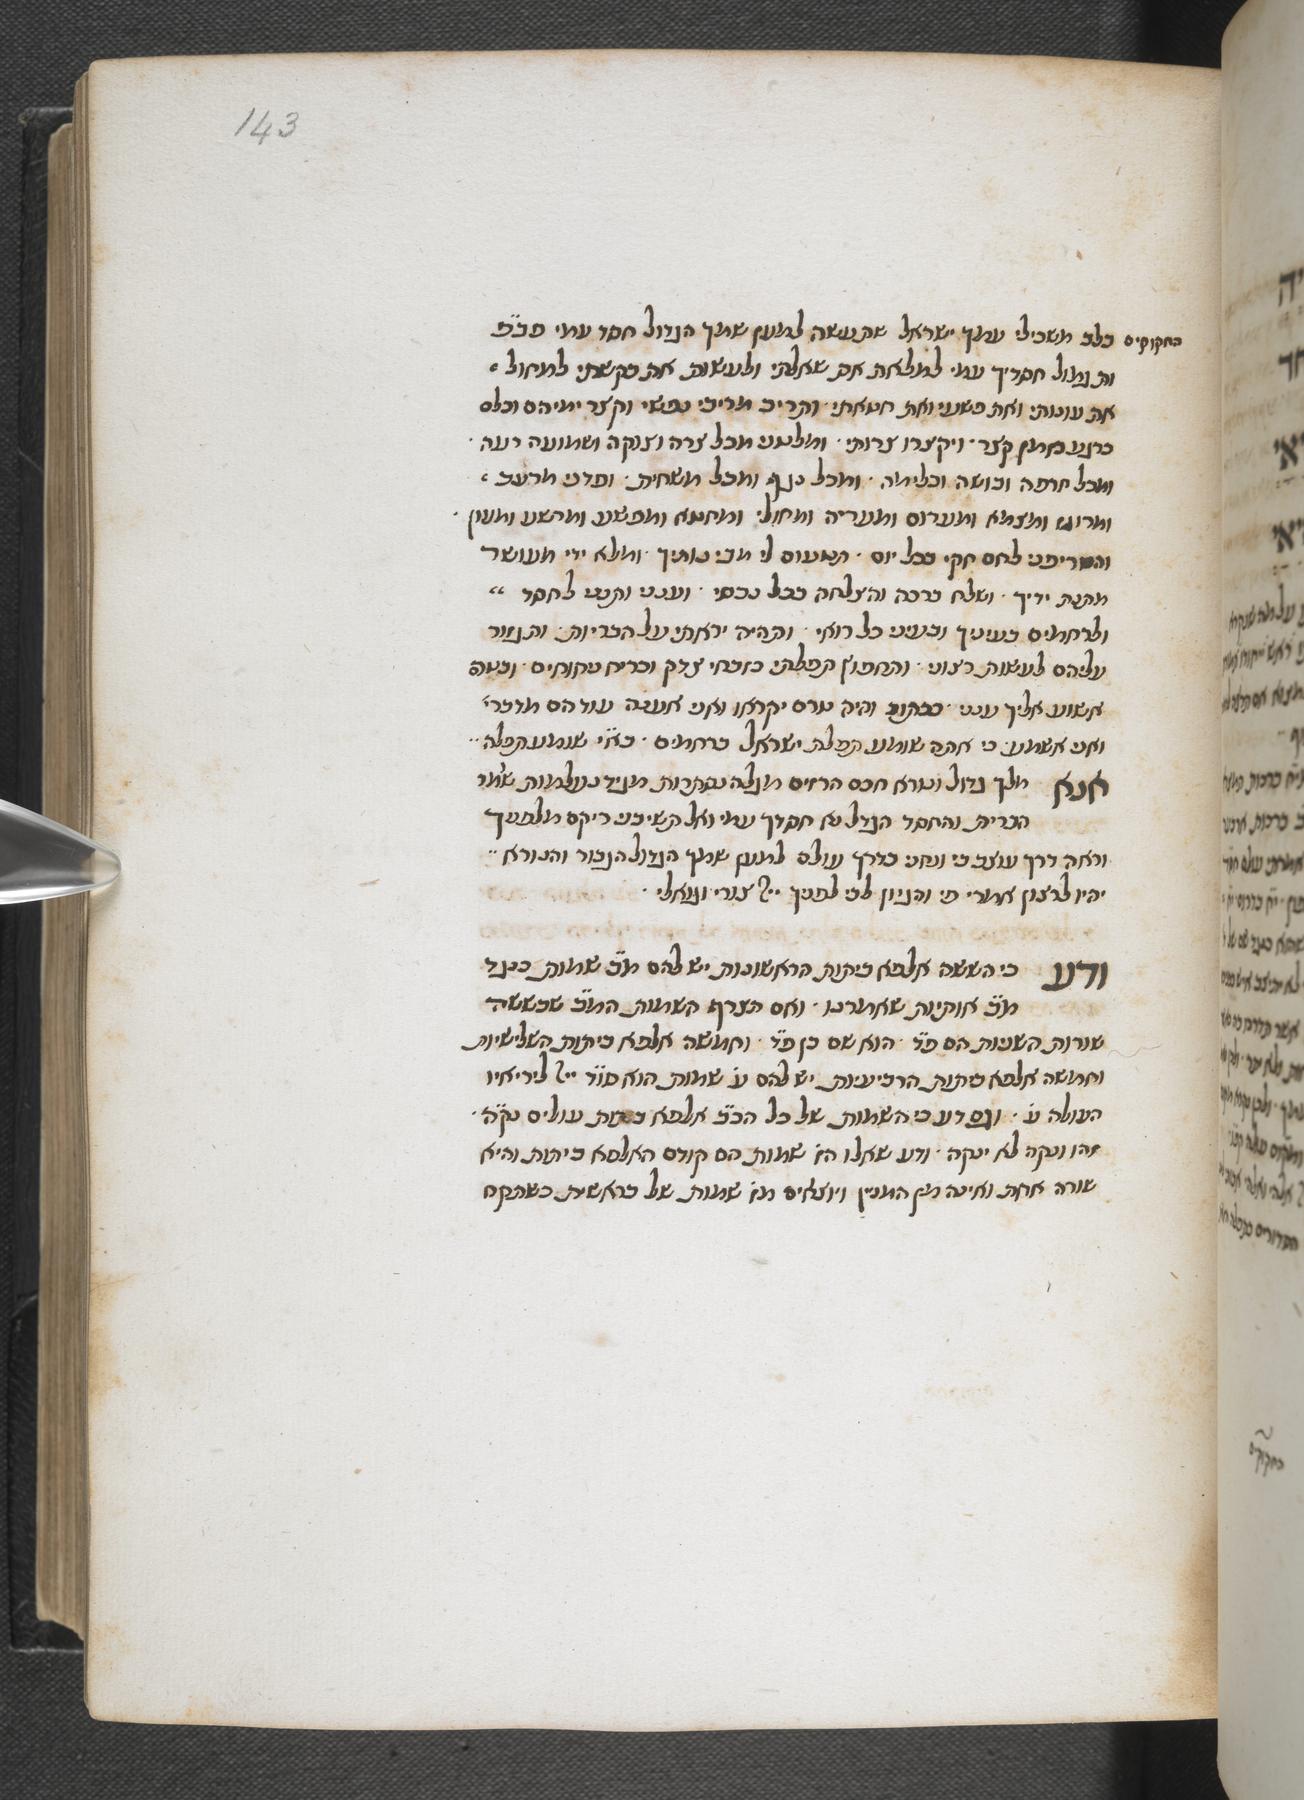 143
החקוקים בלב משכילי עמך ישראל שתעשה למען שמך הגדול חסד עמי פב״פ
ותגמול חסדיך עמי למלאת את שאלתי ולעשות את בקשתי למחול
את עונותי ואת פשעי ואת חטאתי · ותריב מריבי נפשי וקצר ימיהם וכלם
כרגע בזמן קצר · ויקצרו צרותי · ומלטני מכל צרה וצוקה ושמועה רעה ·
ומכל חרפה ובושה וכלימה · ומכל נגף ומכל משחית · ופדני מרעב
ומצמא ומערום ומעריה ומחולי ומחטא ומפשע ומרשע ומעון ·
והטריפני לחם חקי בכל יום · לי מבי · ומלא ידי מעושר
מתנת ידיך · ושלח ברכה והצלחה בכל נכסי · וענני ותנני לחסד
ולרחמים בעיניך ובעיני כל רואי · ותהיה יראתי על הבריות · ותגזור
עליהם לעשות רצוני · ותחפוץ תפלתי כזבחי צדק וכריח ניחוחים ·
אשוע אליך ענני · ככתוב והיה טרם יקראו ואני אענה עוד הם מדברי׳
ואני אשמע · כי אתה שומע תפלת ישראל ברחמים · בא״י שומע תפלה ··
אנא מלך גדול ונורא חכם הרזים מגלה נסתרות מגיד נעלמות שומר
הברית והחסד הגדל נא חסדך עמי ואל תשיבני ריקם מלפניך
וראה דרך עוצב בי ונחני בדרך עולם למען שמך הגדול הגבור והנורא ··
יהיו לרצון אמרי פי והגיון לבי לפניך יי׳ צורי וגואלי ·
ודע כי הששה אלפא ביתות הראשונות יש להם מ״ב שמות כנגד
מ״ב אותיות שאמרנו · ואם תצרף השמות המ״ב שבששה
שורות השניות הם פ״ד · הוא שם בן פ״ד · וחמשה אלפא ביתות השלישיות
וחמשה אלפא ביתות הרביעיות יש להם ע׳ שמות הוא סו״ד יי׳ ליריאיו
העולה ע׳ · וגם דע כי השמות של כל הכ״ב אלפא ביתות עולים קנ״ה ·
זהו ונקה לא ינקה · ודע שאלו הז׳ שמות הם קודם האלפא ביתות והיא
שורה אחת ואינה מן המנין ויוצאים מז׳ שמות של בראשית כשתקח